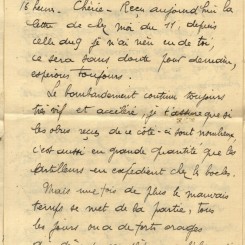 16 heures. Chérie - Reçu aujourd'hui la
lettre de chez moi du 11, depuis
celle du 9 je n'ai rien eu de toi,
ce sera sans doute pour demain,
espérons toujours.
Le bombardement continu toujours
très vif et accéléré, je t'assure que si
les obus reçus de ce côté-ci sont nombreux
c'est aussi en grande quantité que les
artilleurs en expédient chez les boches.
Mais une fois de plus le mauvais
temps se met de la partie, tous
les jours on a de forts orages